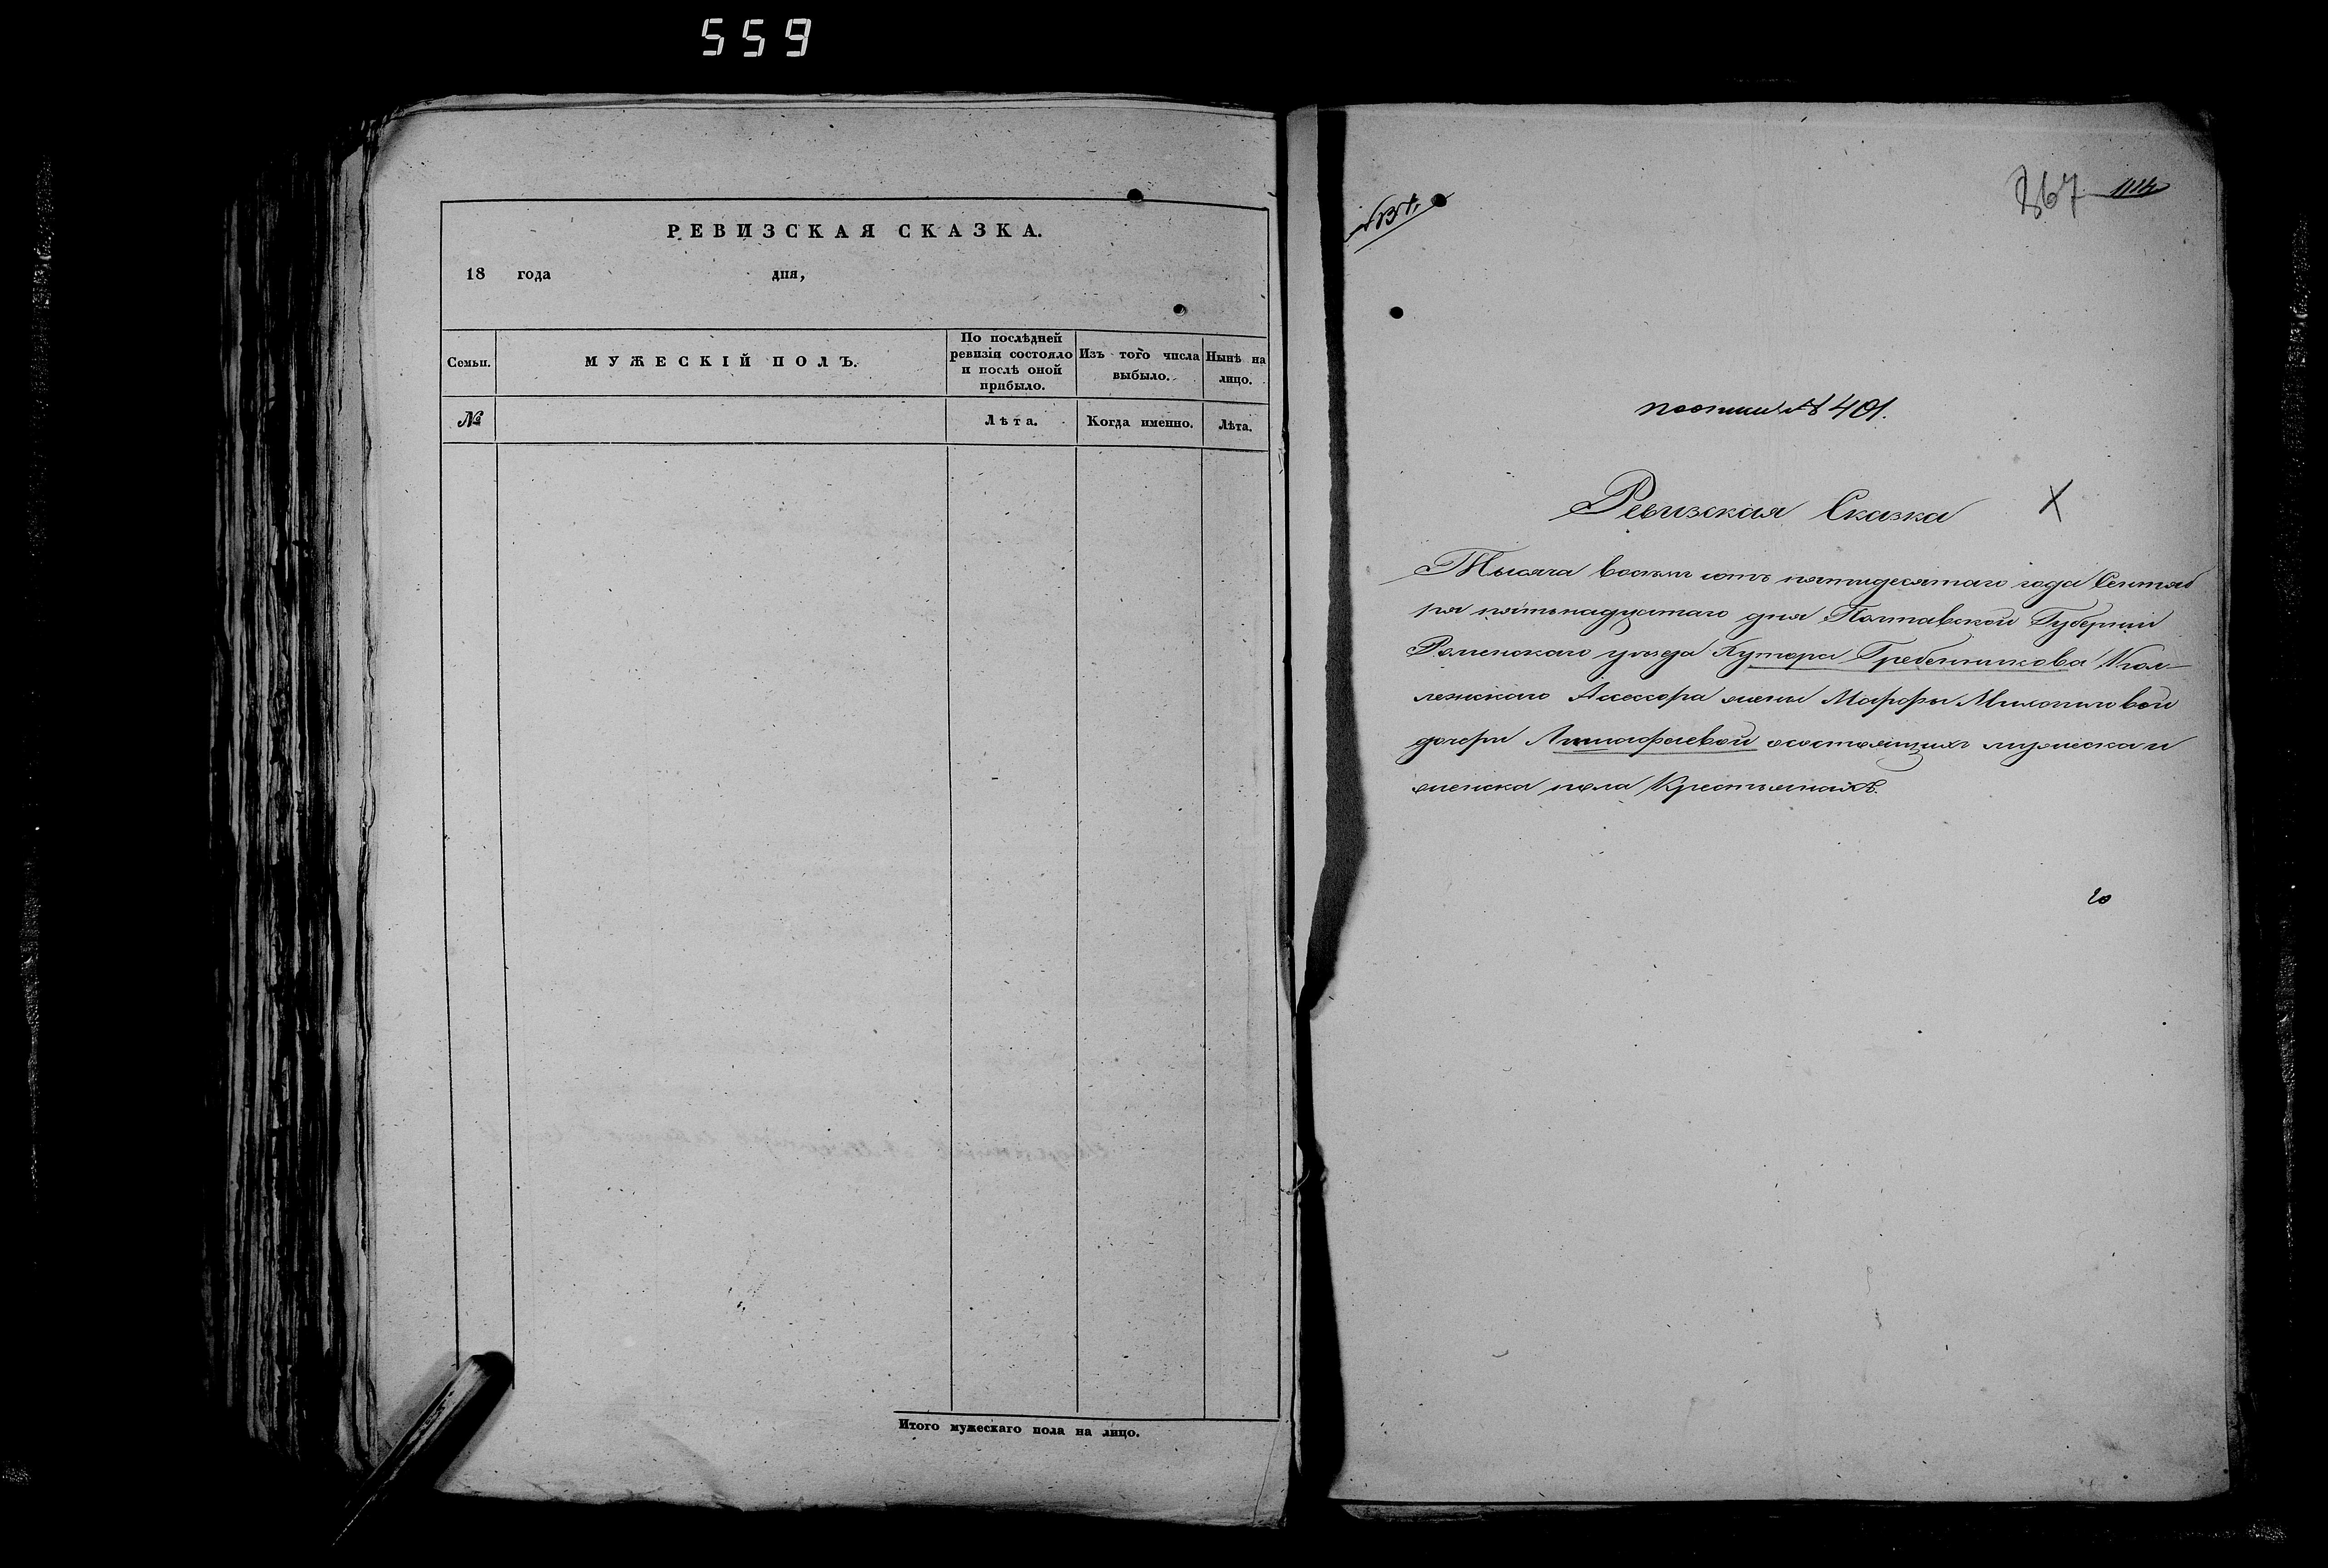 559
РЕВИЗСКАЯ СКАЗКА.
18 года дня,
Семьи.
МУЖЕСКІЙ ПОЛЪ.
По послѣдней ревизіи состояло и послѣ оной прибыло.
Изъ того числа выбыло.
Нынѣ на лицо.
№
Лѣта.
Когда именно.
Лѣта.
Итого мужескаго пола на лицо.
867
№ 401.
Ревизская Сказка
Х
Тысяча восемь сотъ пятидесятаго года Сентяб
ря пятьнадцятаго дня Полтавской Губерніи
Роменскаго уѣзда Хутора Гребенникова Кол-
лежскаго Ассесора жены Марфы
дочери состоящихъ мужеска и
женска пола Крестьянахъ.